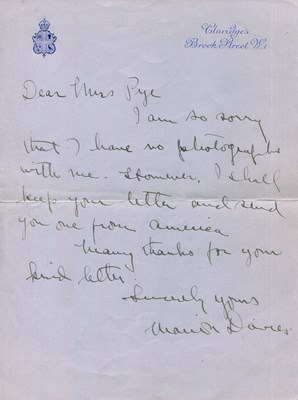 Claridge's
Brook Street W.
Dear Mrs Pye
I am so sorry
that I have no photographs
with me. However, I shall
keep your letter and send
you one from america
Many thanks for your
kind letter.
Sincerely yours
Marion Davies